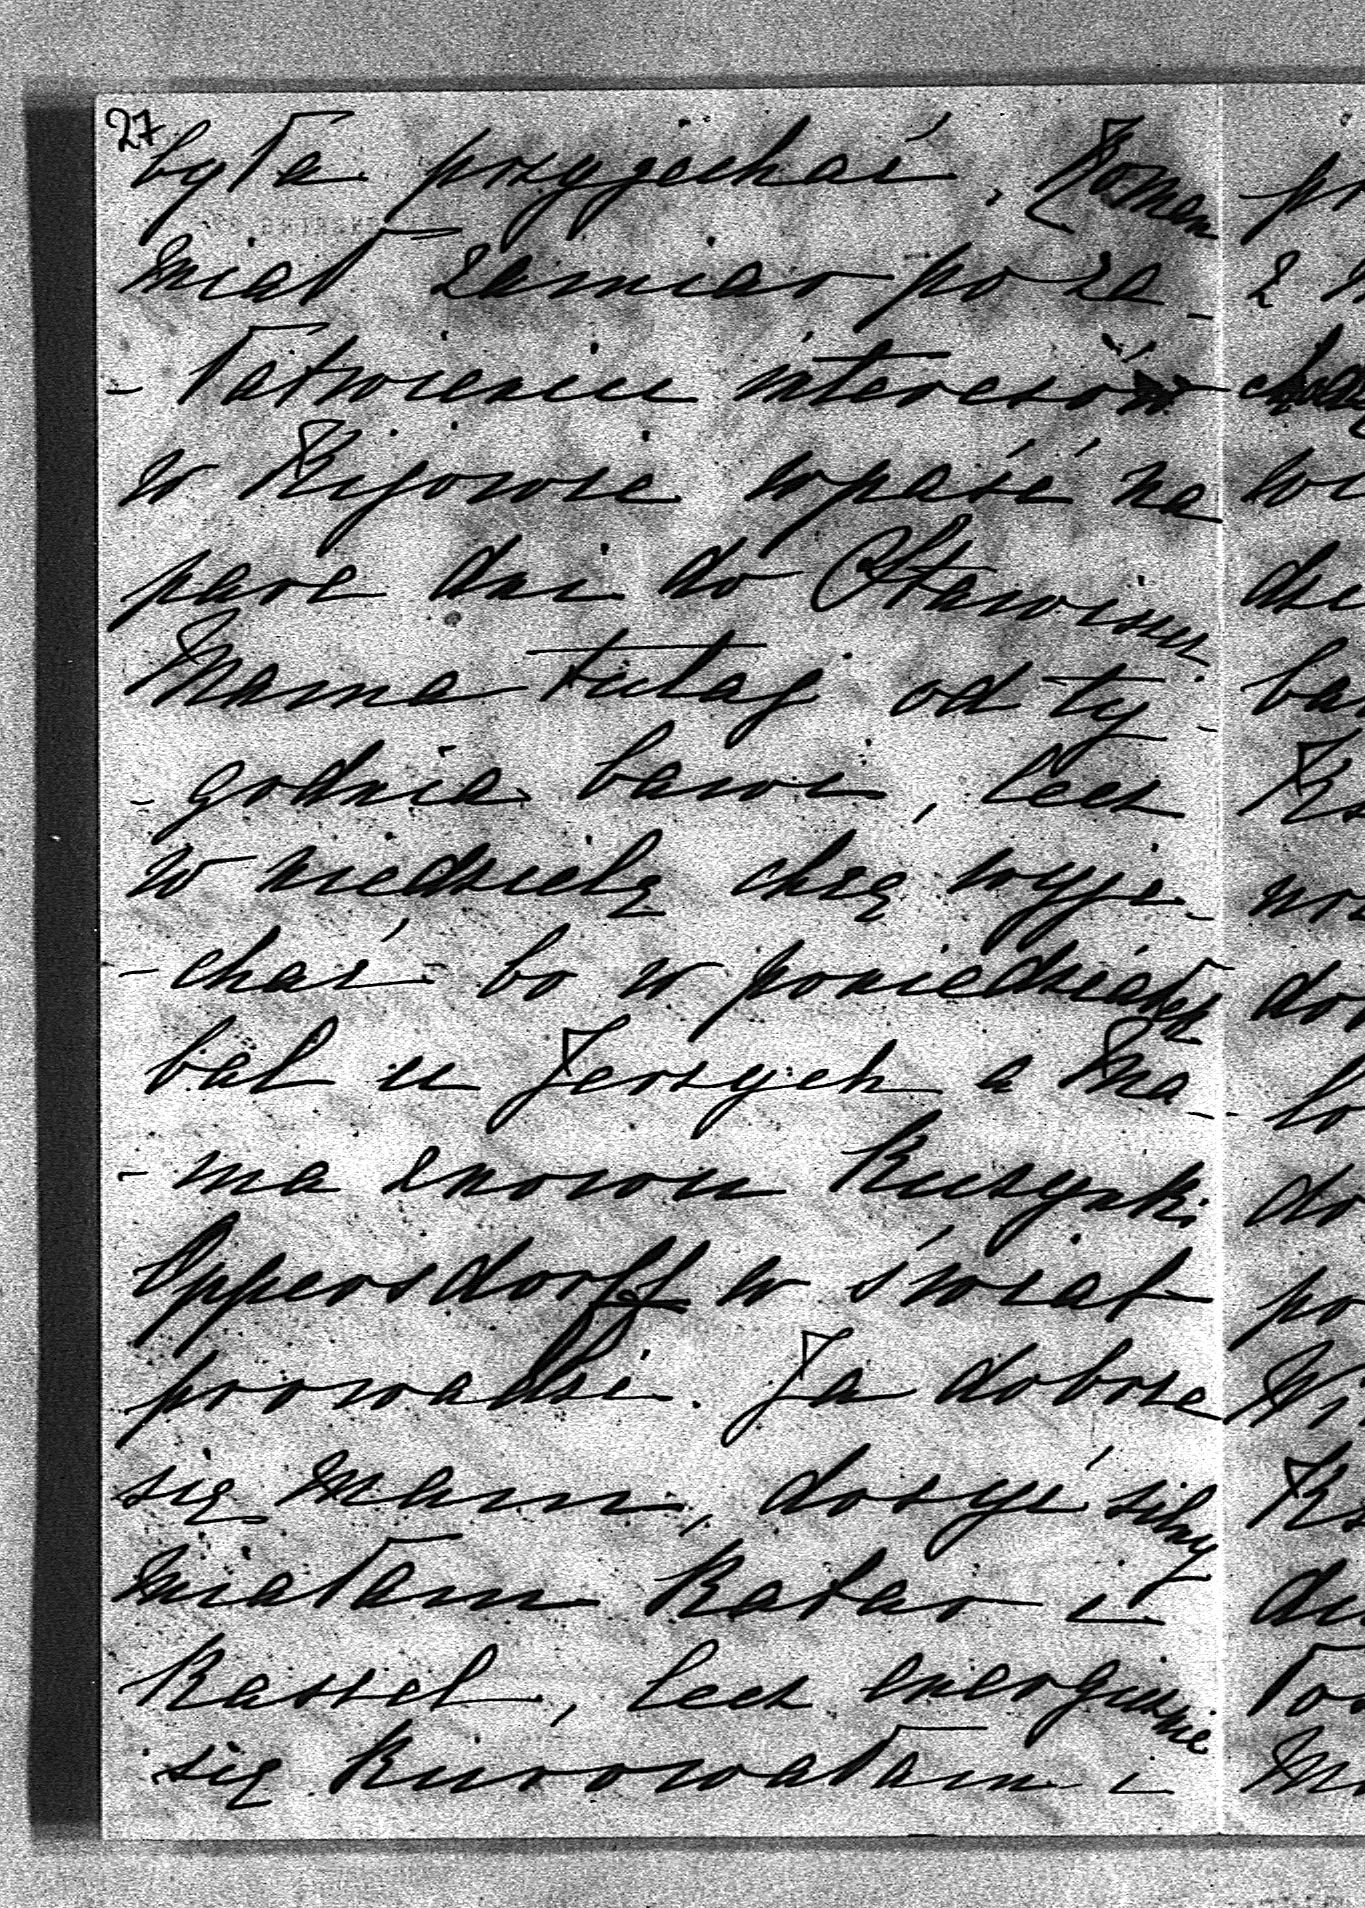 27
była przyjechać, Roman
miał zamiar po za-
-łatwieniu interesów
w Kijowie wpaść na
parę dni do Sławuty.
Mama tutaj od ty-
-godnia bawi, lecz
w niedzielę chcę wyje-
-chać bo w poniedziałek
bal u Jerzych a Ma-
-ma znowu Kuzynki
Oppersdorff w świat
prowadzi. Ja dobrze
się mam, dosyć silny
miałam Katar i
Kaszel, lecz energicznie
się kurowałam i